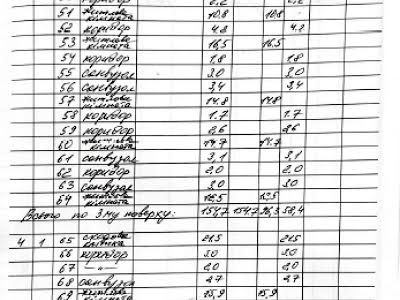 коридор
51 житлова кімната 10,8 10,8
52 коридор 4.2 4.2
53 житлова кімната 16,5 16,5
54 коридор 1.8 1.8
55 санвузол 3.0 3.0
56 санвузол 3,4 3,4
57 житлова кімната 14.8 14.8
58 коридор 1.7 1.7
59 коридор 2.6 2.6
60 житлова кімната 14.7 14.7
61 санвузол 3,1 3,1
62 коридор 2.0 2.0
63 санвузол 3.0 3.0
64 житлова кімната 12,5 12,5
Всього по 3му поверху: 154,7 154.7 96,3 58,4
4 1 65 сходова клітка 21.5 21.5
66 коридор 3.0 3.0
67 —"— 2.0 2.0
68 санвузол 2.7 2.7
69 житлова 15,9 15,9